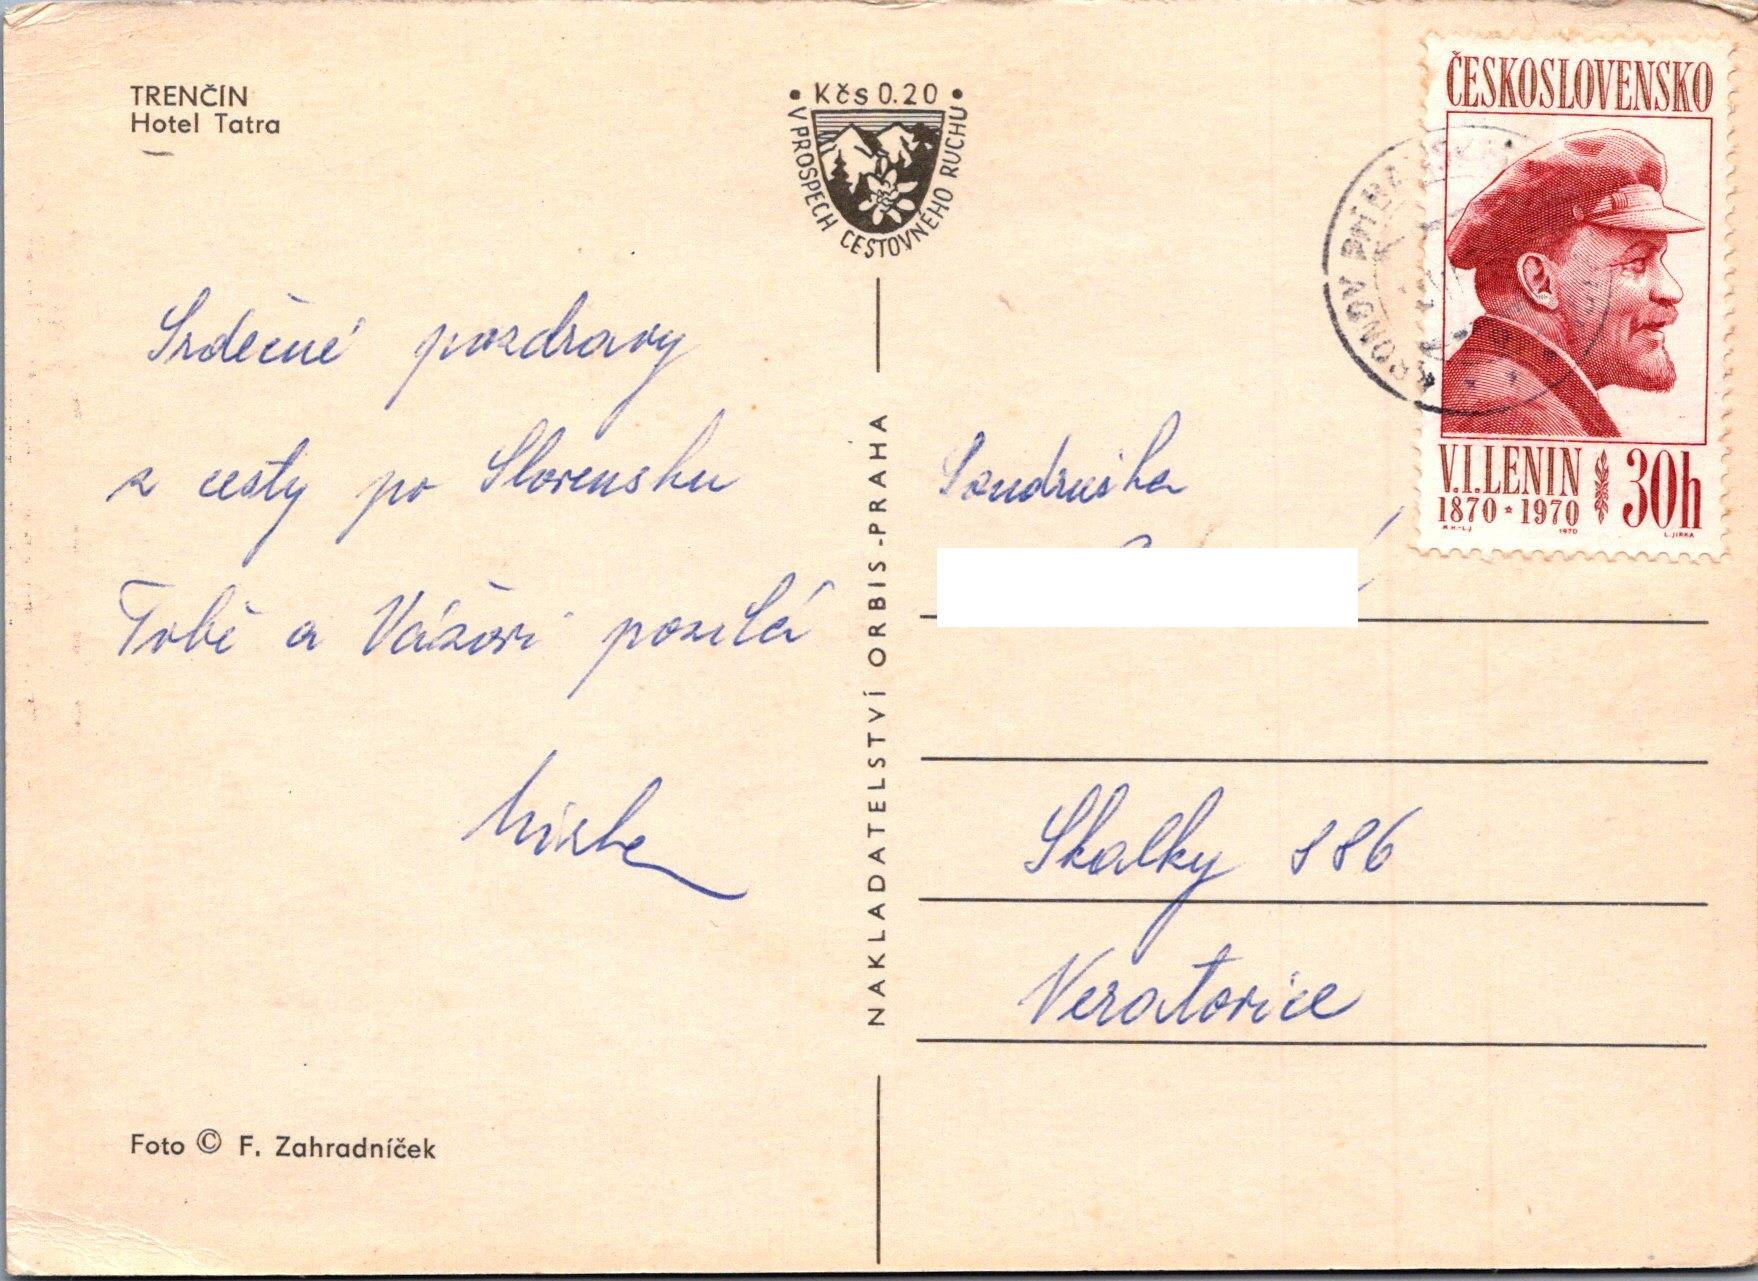 TRENČÍN
Hotel Tatra
• Kčs 0.20 •
V PROSPECH CESTOVNÉHO RUCHU
Srdečné pozdravy
z cesty po Slovensku
Tobě a posílá
Foto © F. Zahradníček
NAKLADATELSTVÍ ORBIS - PRAHA
ČESKOSLOVENSKO
V.I.LENIN 30h
1870 * 1970
1970
L.JIRKA
Soudružka
Skalky 886
Neratovice